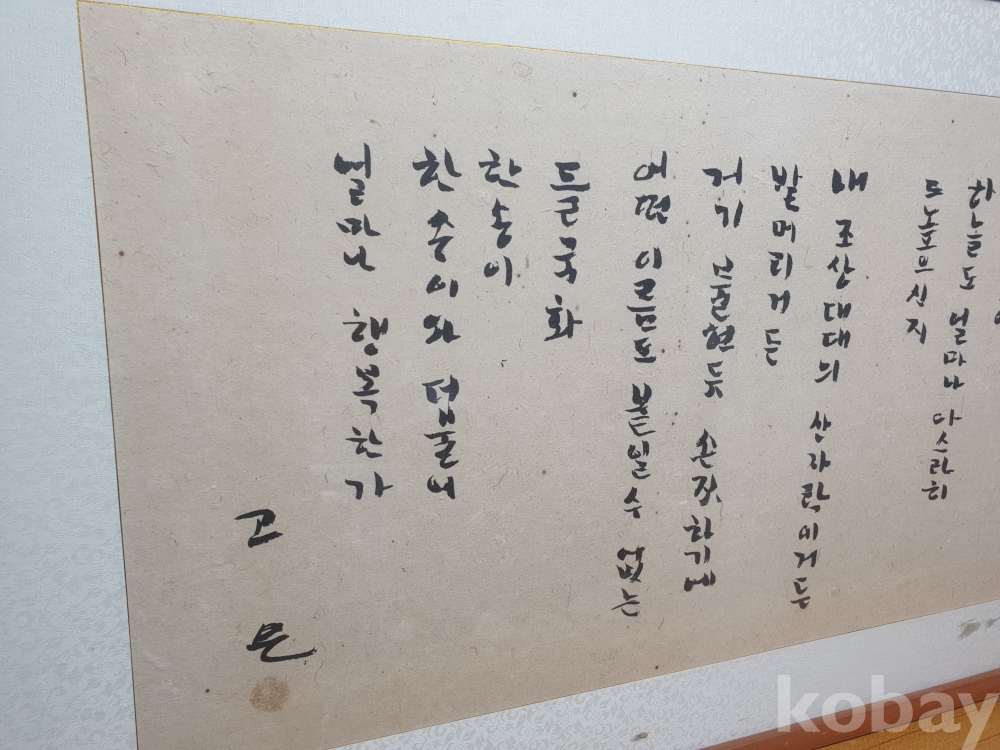 하늘도 얼마나 다스라히
드높으신지
내 조상대대의 산자락이거든
발머리거든
거기 불현듯 손짓하기에
어떤 이름도 붙일 수 없는
들국화
한 송이
한 송이와 더불어
얼마나 행복한가
고 은
kobay